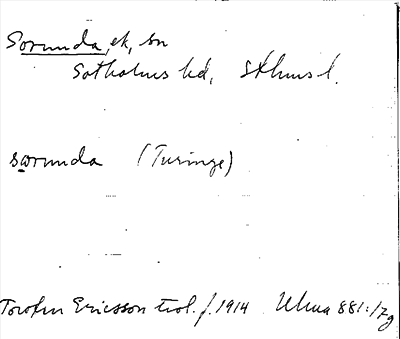 Sorunda, ek, sn
Sotholms hd, Sthms l.
sorunda (Turinge)
Torsten Ericsson trol. f. 1914 Ulma 881:17g